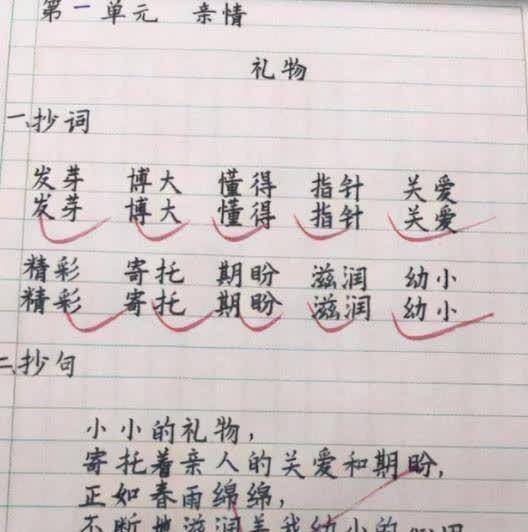 第一单元 亲情
礼物
一、抄词
发芽 博大 懂得 指针 关爱
发芽 博大 懂得 指针 关爱
精彩 寄托 期盼 滋润 幼小
精彩 寄托 期盼 滋润 幼小
二、抄句
小小的礼物，
寄托着亲人的关爱和期盼，
正如春雨绵绵，
不断地滋润着我幼小的心田